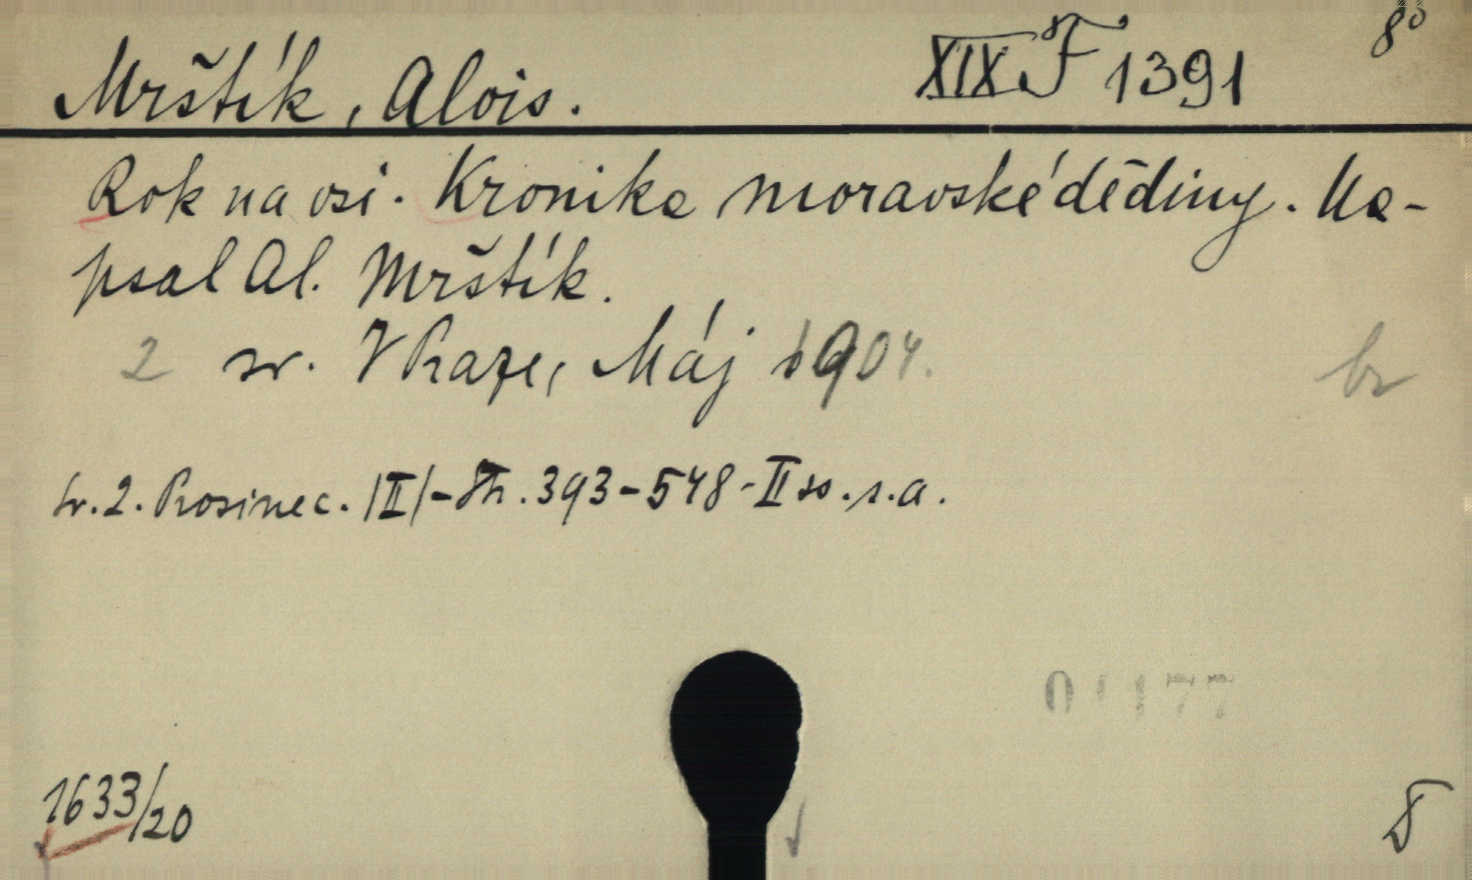 8°
Mrštík, Alois. XIX F 1391
Rok na vsi. Kronika moravské dědiny. Na-
psal Al. Mrštík.
2 sv. V Praze, Máj 1904. br
Sv. 2. Prosinec. /II/ - Str. 393-548-II ss. s.a.
01177
1633/20